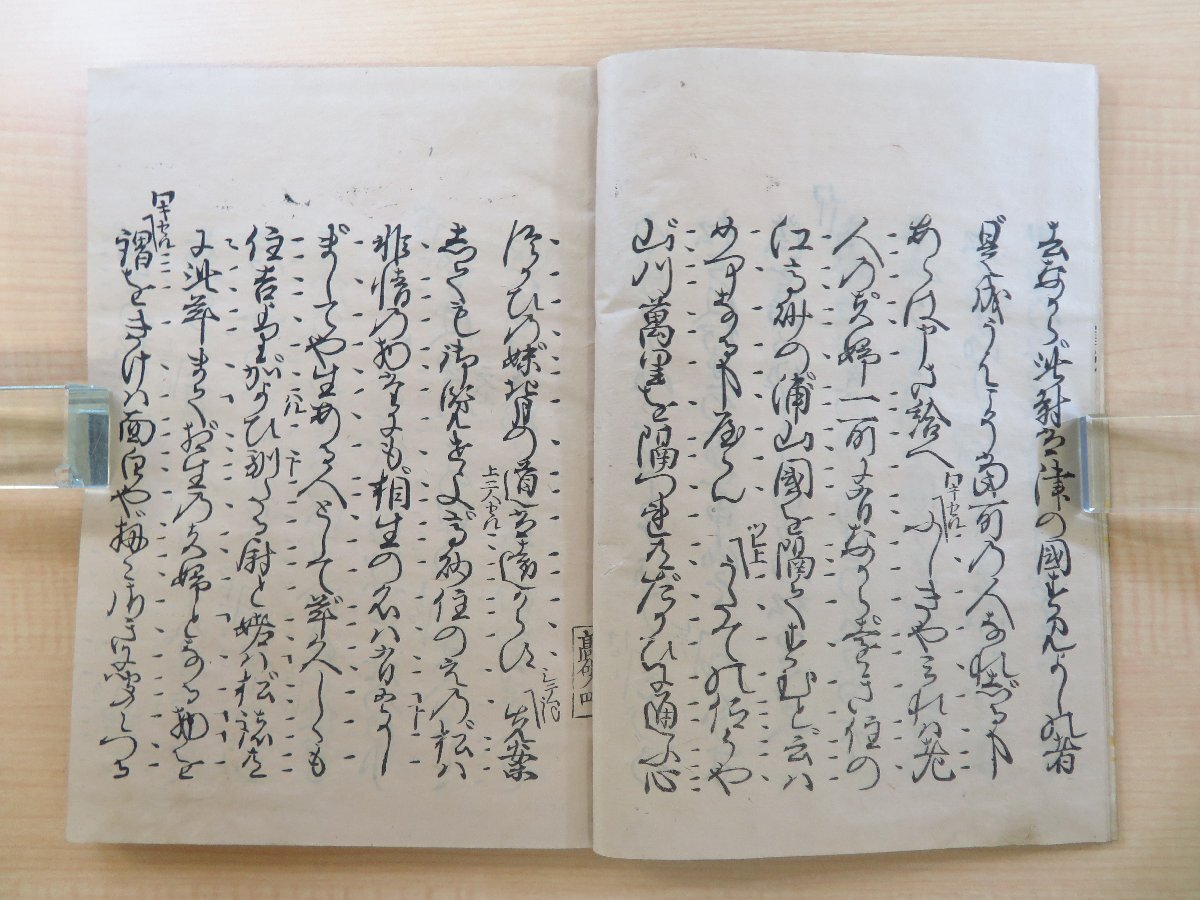 去ながら此尉は津の國すみよしの者
是成うばこそ當所の人なれ知る事
あらば申さ給へ ふしぎやみれば老
人の夫婦一所に有ながら遠き住の
江高砂の浦山國を隔てすむと云は
いかなる事やらん うたての仰候や
山川萬里を隔つれ共たがひに通ふ心
づかひの妹背の道は遠からず 先案
じても御覧ぜよ高砂住の江の松は
非情の物だにも相生の名は有ぞかし
ましてや生ある人として年久しくも
住吉よりかよひ馴たる尉と姥は松諸共
に此年まで相生の夫婦となる物を
謂をきけば面白や扨々前に聞えつる
高砂 四